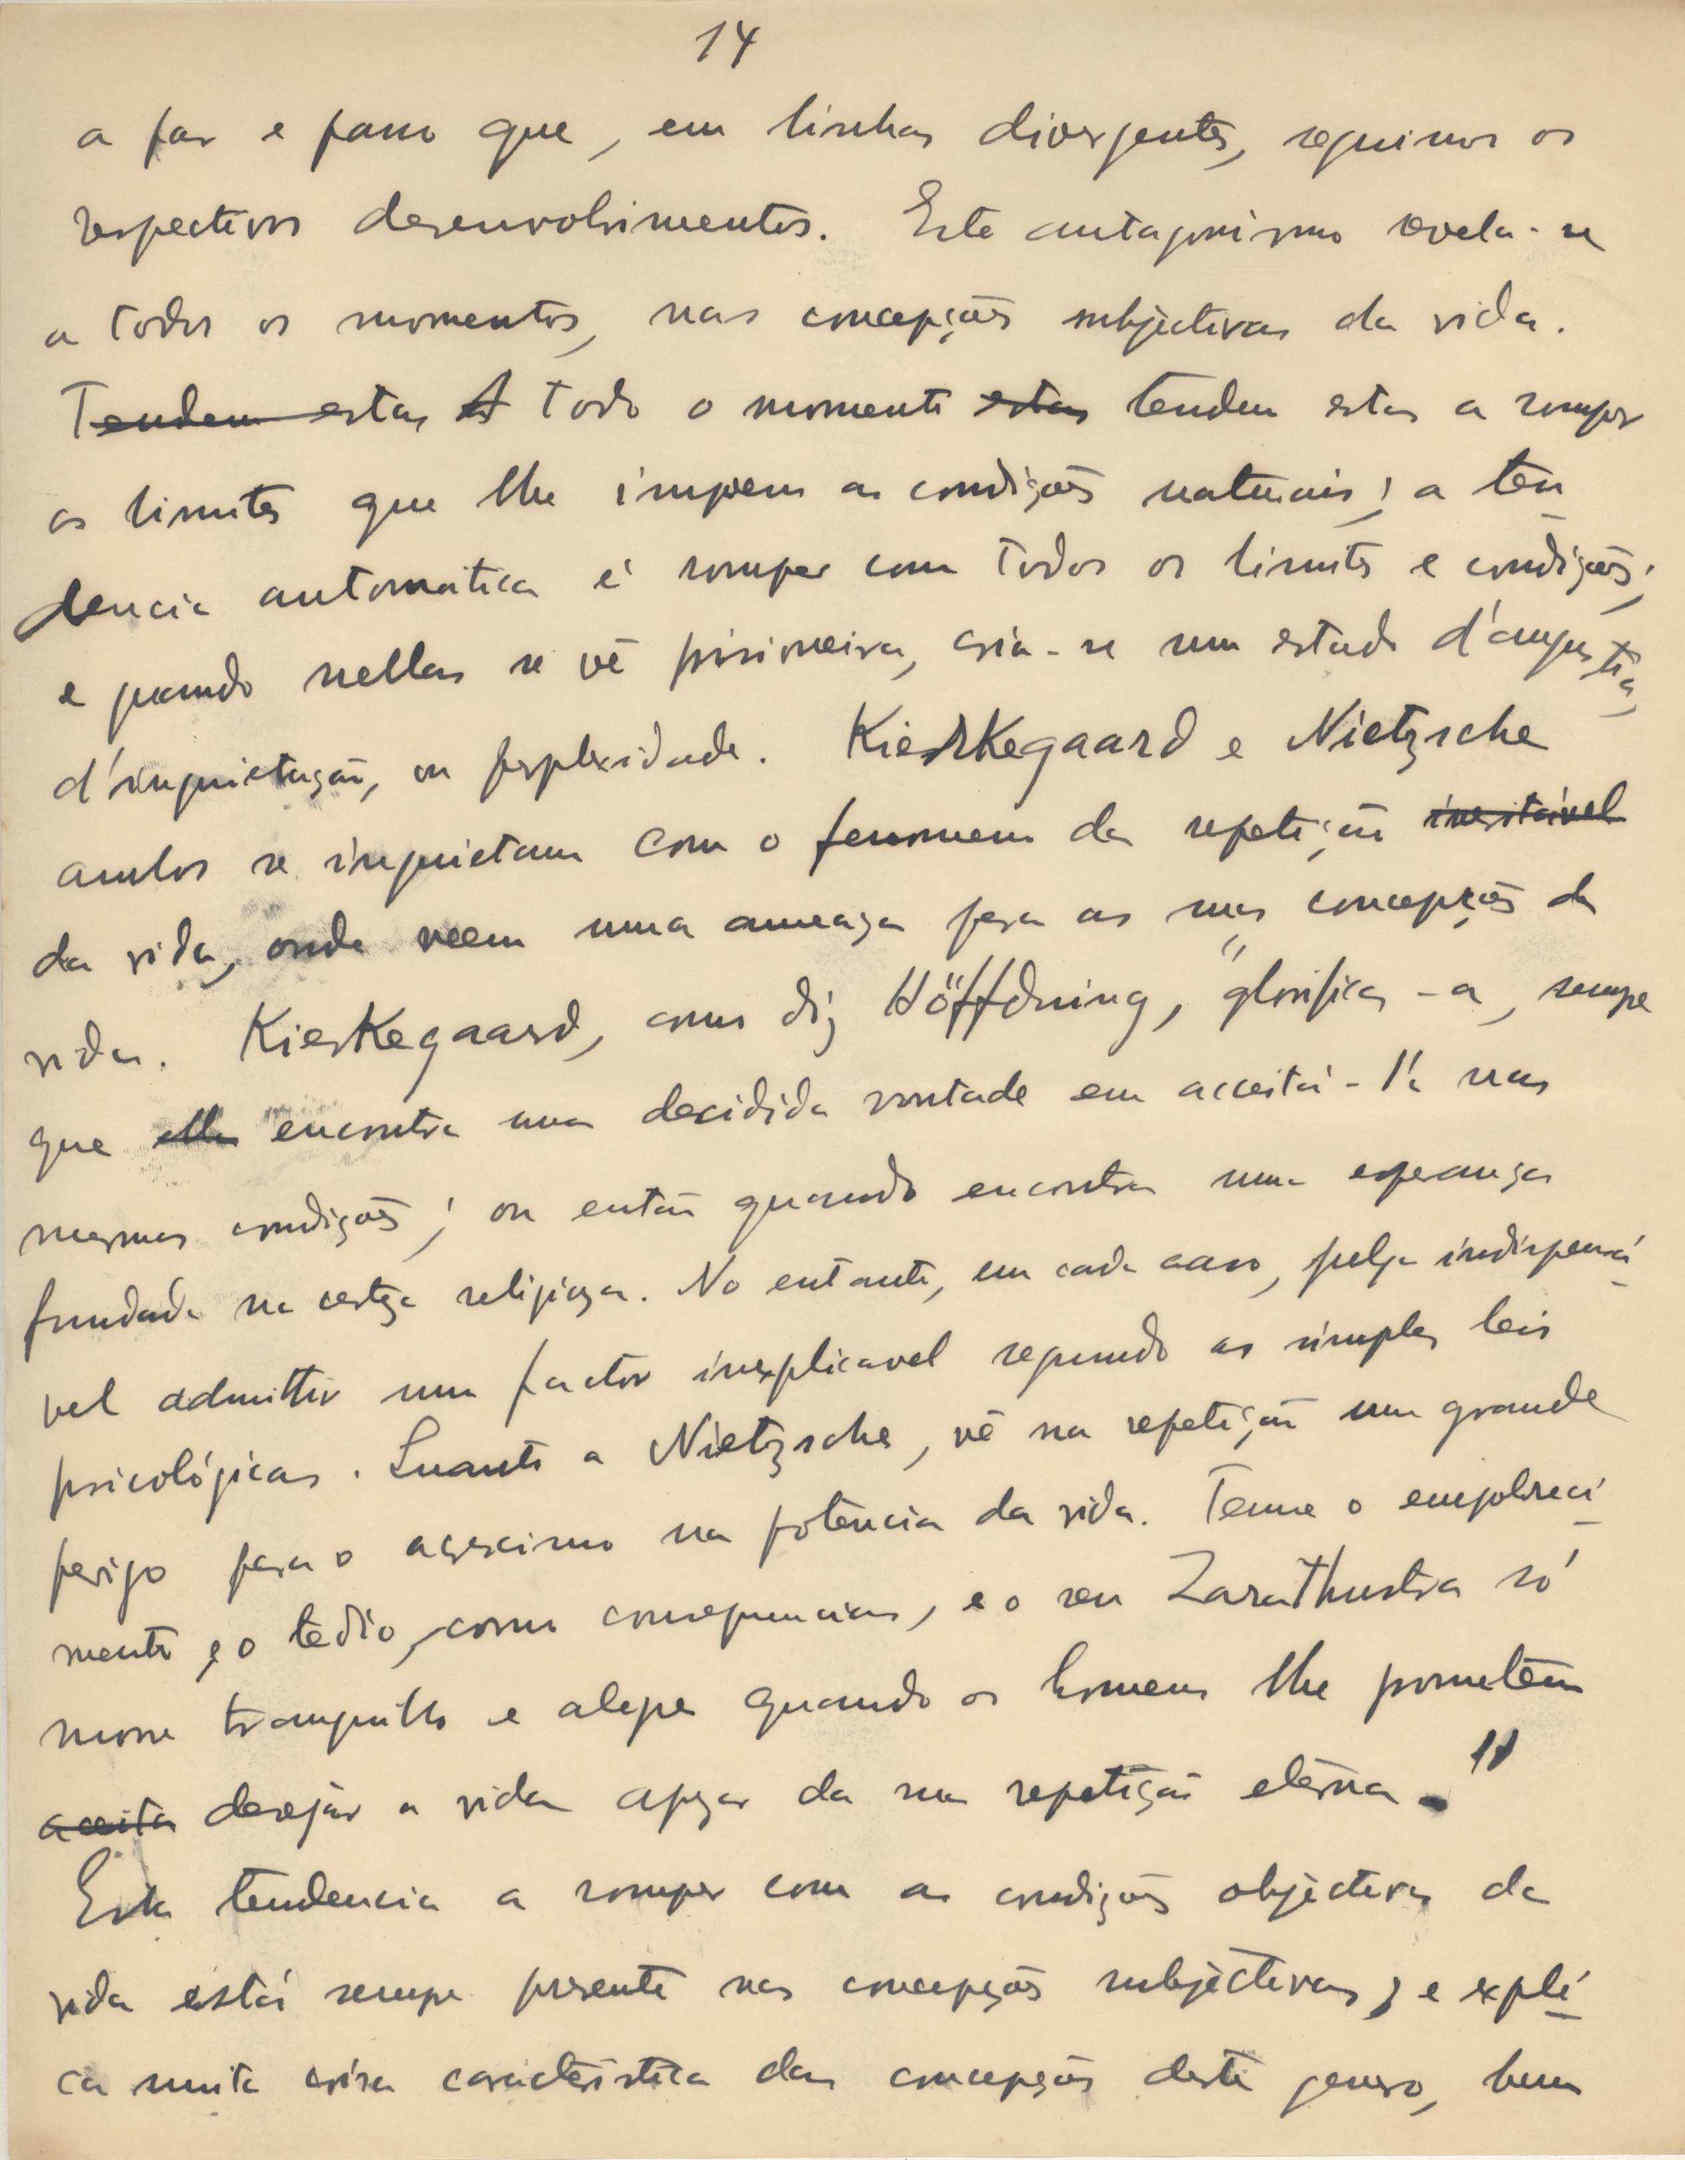 14
a par e passo que, em linhas divergentes, seguimos os
respectivos desenvolvimentos. Este antagonismo revela-se
a todos os momentos, nas concepções subjectivas da vida.
Tendem estas A todo o momento estas tendem estas a romper
os limites que lhe impoem as condições naturais; a ten
dencia automática é romper com todos os limites e condições;
e quando nellas se vê prisioneira, cria-se um estado d'angustia,
d'inquietação, ou perplexidade. Kierkegaard e Nietzsche
ambos se inquietam com o fenomeno da repetição inevitável
da vida, onde veem uma ameaça para as suas concepções da
vida. Kierkegaard, como diz Höffdning, "glorifica-a, sempre
que ella encontra uma decidida vontade em acceitá-l'a nas
mesmas condições; ou então quando encontra uma esperança
fundada na certeza religiosa. No entanto, em cada caso, julga indispensá
vel admittir um factor inexplicavel segundo as simples leis
psicológicas. Quanto a Nietzsche, vê na repetição um grande
perigo para o acrescimo na potência da vida. Teme o empobreci
mento e o tedio, como consequencias, e o seu Zarathustra só
morre tranquillo e alegre quando os homens lhe prometem
aceita desejar a vida apezar da sua repetição eterna."
Esta tendencia a romper com as condições objectivas da
vida está sempre presente nas concepções subjectivas, e expli
ca muita coisa característica das concepções deste genero, bem